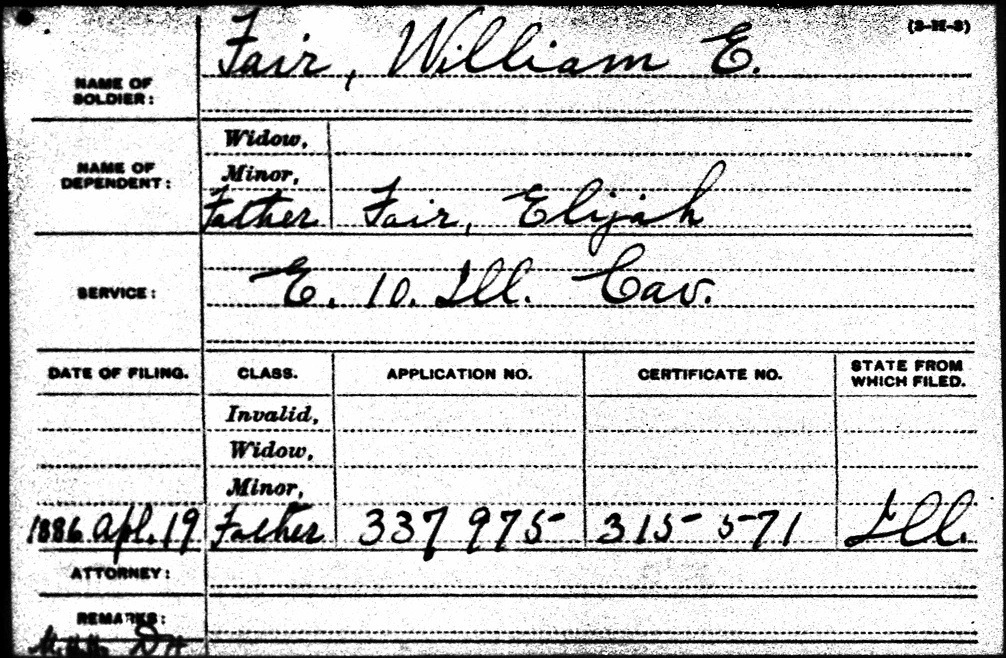 (3-H-3)
Fair, William E.
NAME OF
SOLDIER:
Widow,
NAME OF
DEPENDENT:
Minor,
Father Fair, Elijah
SERVICE: E. 10. Ill. Cav.
DATE OF FILING. CLASS. APPLICATION NO. CERTIFICATE NO. STATE FROM
WHICH FILED.
Invalid,
Widow,
Minor,
1886 Apl. 19 Father 337 975 315 571 Ill.
ATTORNEY:
REMARKS: